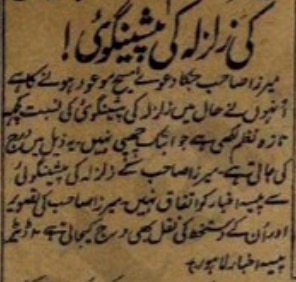 کی زلزلہ کی پیشینگوئی!
میرزا صاحب جنکا دعویٰ مسیح موعود ہونے کا ہے
اُنہوں نے حال میں زلزلہ کی پیشینگوئی کی نسبت ایک
تازہ نظم لکھی ہے جو ابتک چھپی نہیں۔ یہ ذیل میں درج
کی جاتی ہے۔ میرزا صاحب کے زلزلہ کی پیشینگوئی
سے پیسہ اخبار کو اتفاق نہیں۔ میرزا صاحب کی تصویر
اور اُن کے دستخط کی نقل بھی درج کیجاتی ہے۔ اڈیٹر
پیسہ اخبار لاہور۔